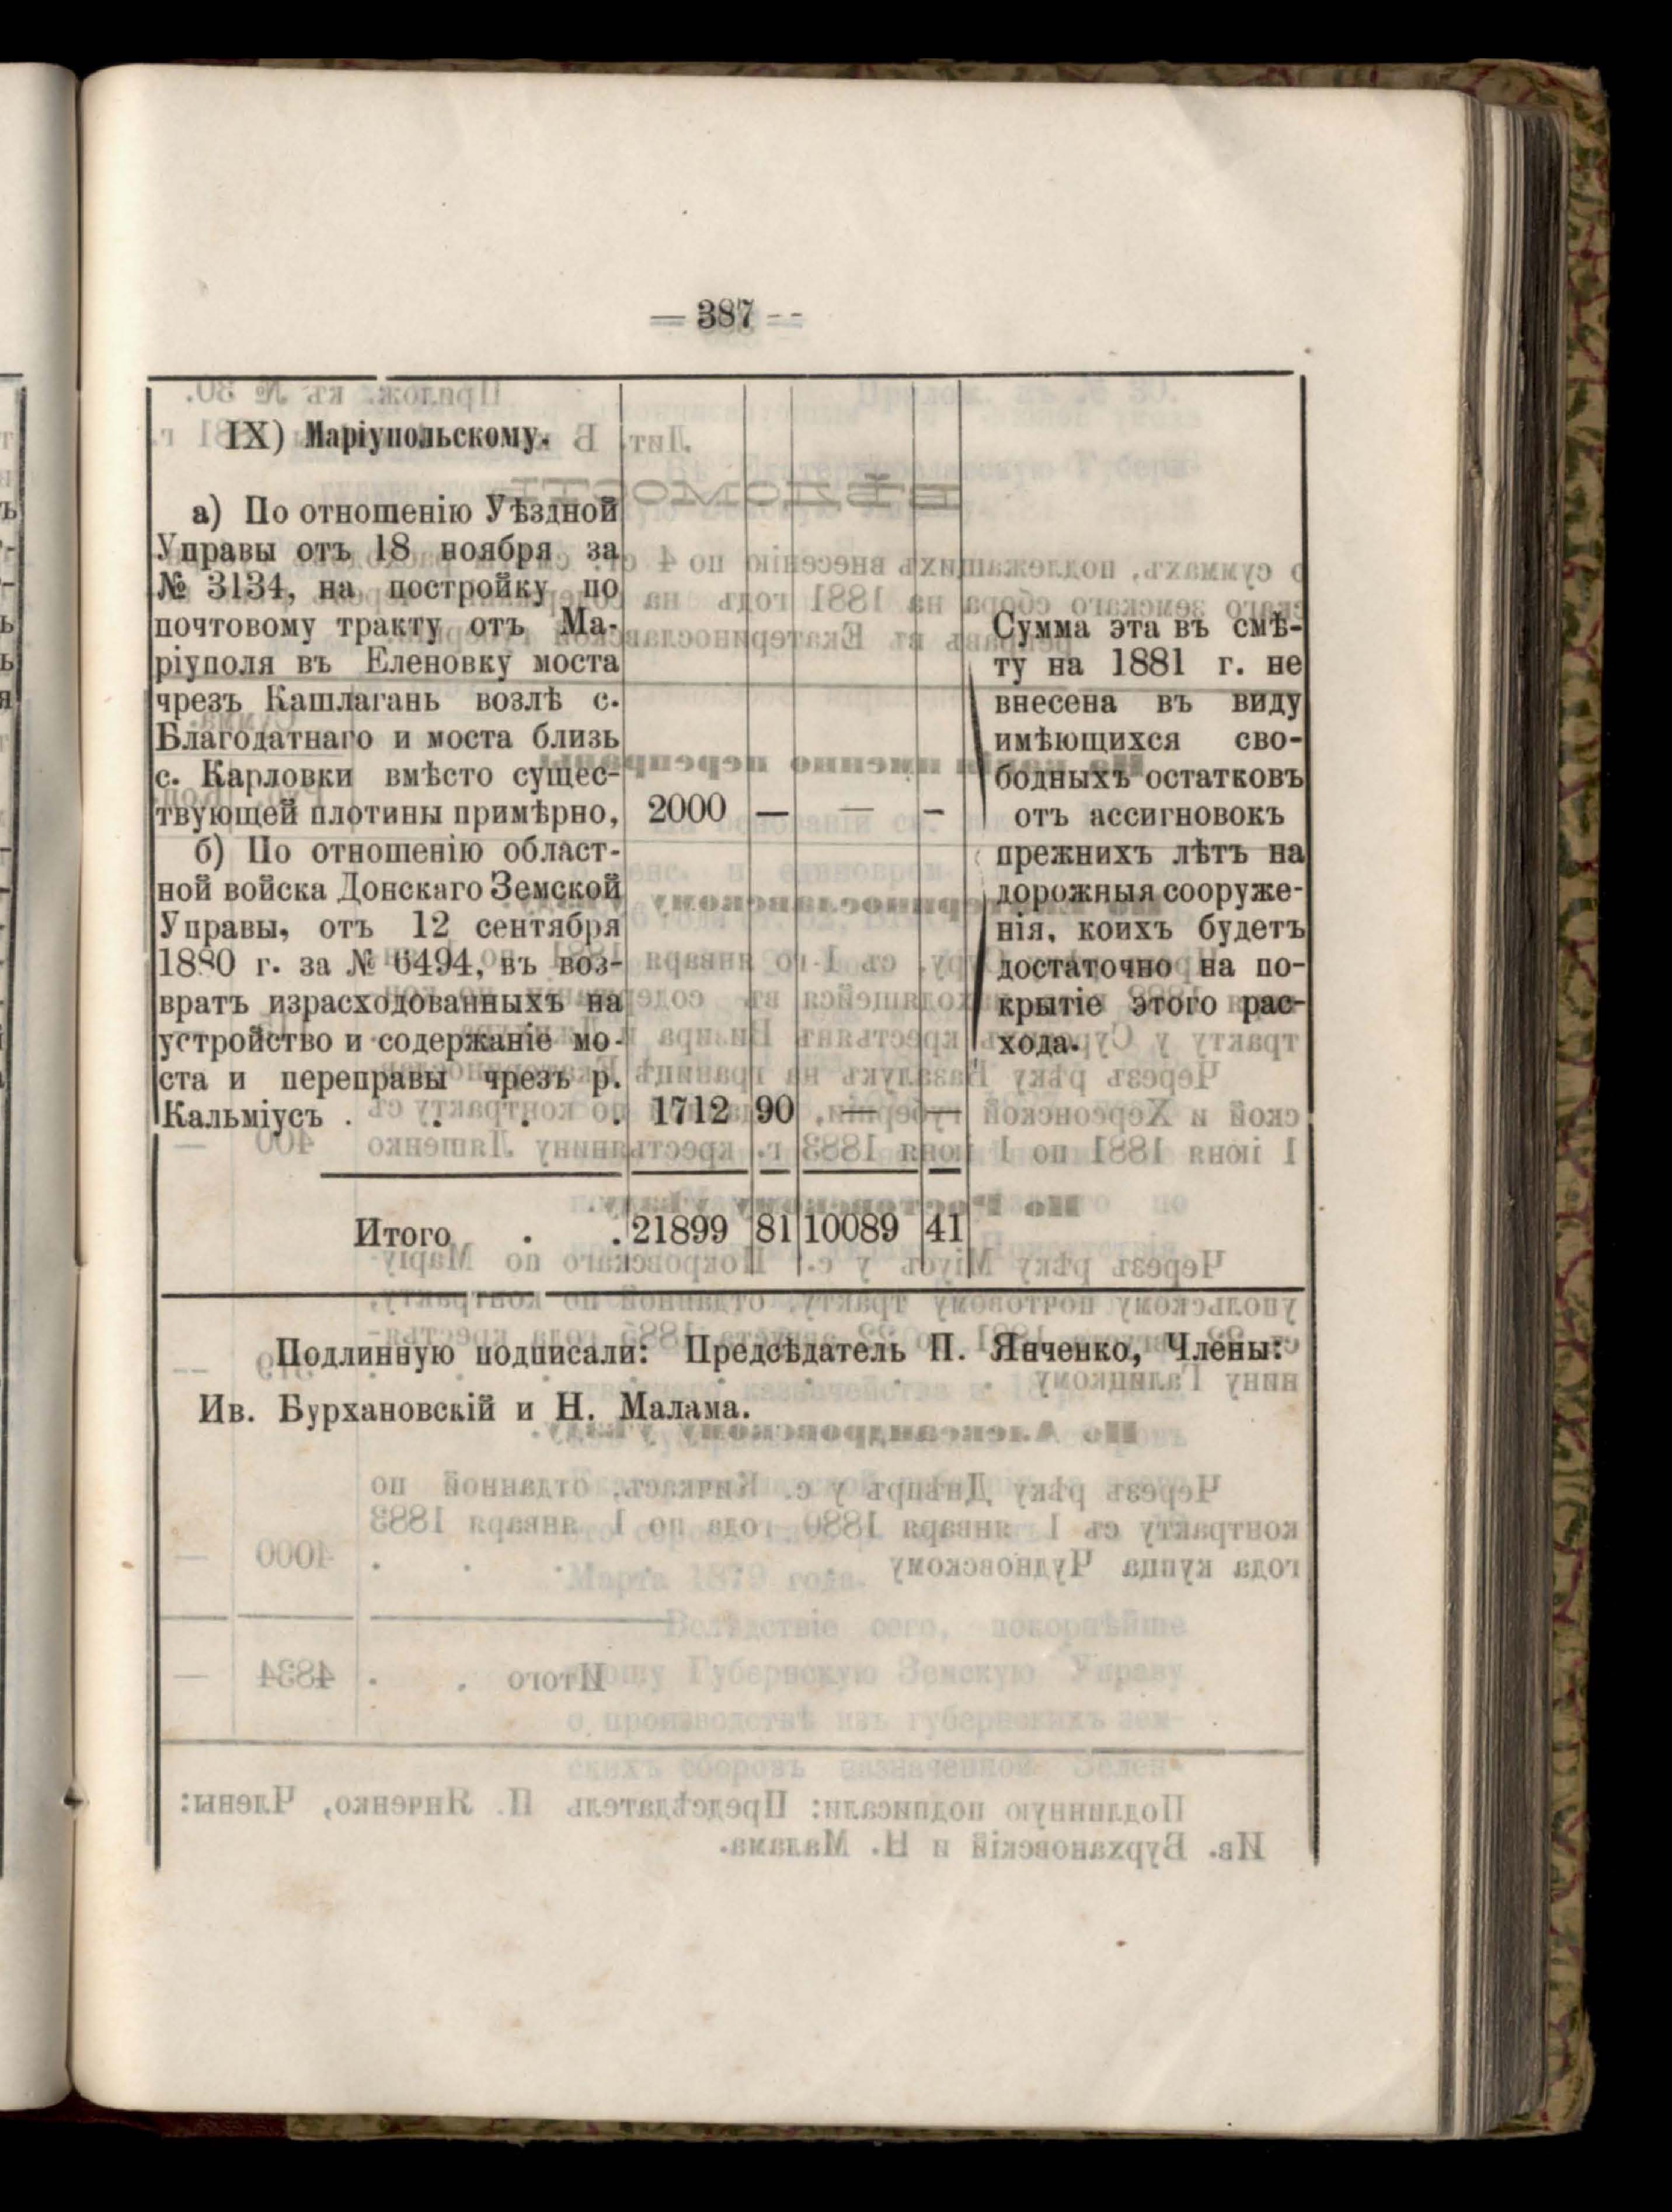 — 387 --
IX) Маріупольскому.
а) По отношенію Уѣздной
Управы отъ 18 ноября за
№ 3134, на постройку по
почтовому тракту отъ Ма-
ріуполя въ Еленовку моста
чрезъ Кашлагань возлѣ с.
Благодатнаго и моста близь
с. Карловки вмѣсто сущес-
твующей плотины примѣрно, 2000 — — —
б) По отношенію област-
ной войска Донскаго Земской
Управы, отъ 12 сентября
1880 г. за № 6494, въ воз-
вратъ израсходованныхъ на
устройство и содержаніе мо-
ста и переправы чрезъ р.
Кальміусъ . . . . 1712 90 — —
Сумма эта въ смѣ-
ту на 1881 г. не
внесена въ виду
имѣющихся сво-
бодныхъ остатковъ
отъ ассигновокъ
прежнихъ лѣтъ на
дорожныя сооруже-
нія, коихъ будетъ
достаточно на по-
крытіе этого рас-
хода.
Итого . . 21899 81 10089 41
Подлинную подписали: Предсѣдатель П. Янченко, Члены:
Ив. Бурхановскій и Н. Малама.